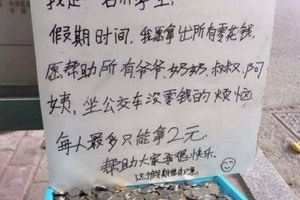 我是一名小学生
假期时间,我愿拿出所有零花钱,
愿帮助所有爷爷、奶奶、叔叔、阿
姨,坐公交车没零钱的烦恼
每人最多只能拿2元.
帮助大家我很快乐.